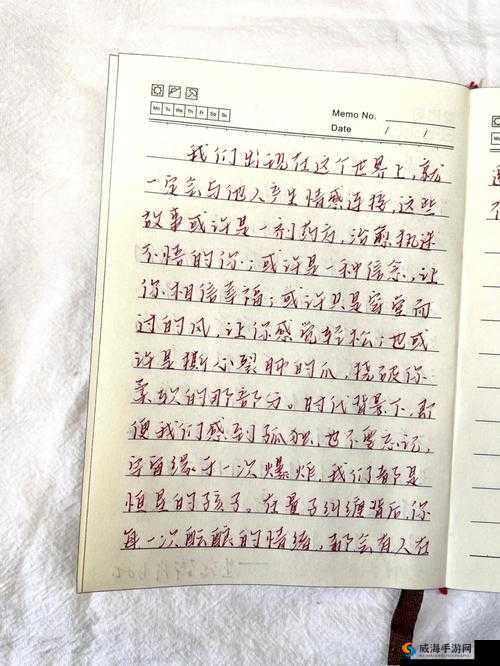 Mo Tu We Th Fr Sa Su
Memo No.
Date / /
我们出现在这个世界上,就
一定会与他人产生情感连接,这些
故事或许是一剂药方,治愈执迷
不悟的你;或许是一种信念,让
你相信幸福;或许只是穿堂而
过的风,让你感觉轻松;也或
许是撕心裂肺的爪,挠破你
柔软的那部分。时代背景下,即
便我们感到孤独,也不要忘记,
宇宙缘于一次爆炸,我们都是
恒星的孩子。在量子纠缠背后,你
每一次酝酿的情绪,都会有人在
威海手游网